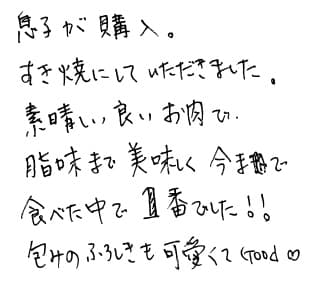 息子が購入。
すき焼にしていただきました。
素晴しい良いお肉で、
脂味まで美味しく今まで
食べた中で1番でした!!
包みのふろしきも可愛くてGood♡